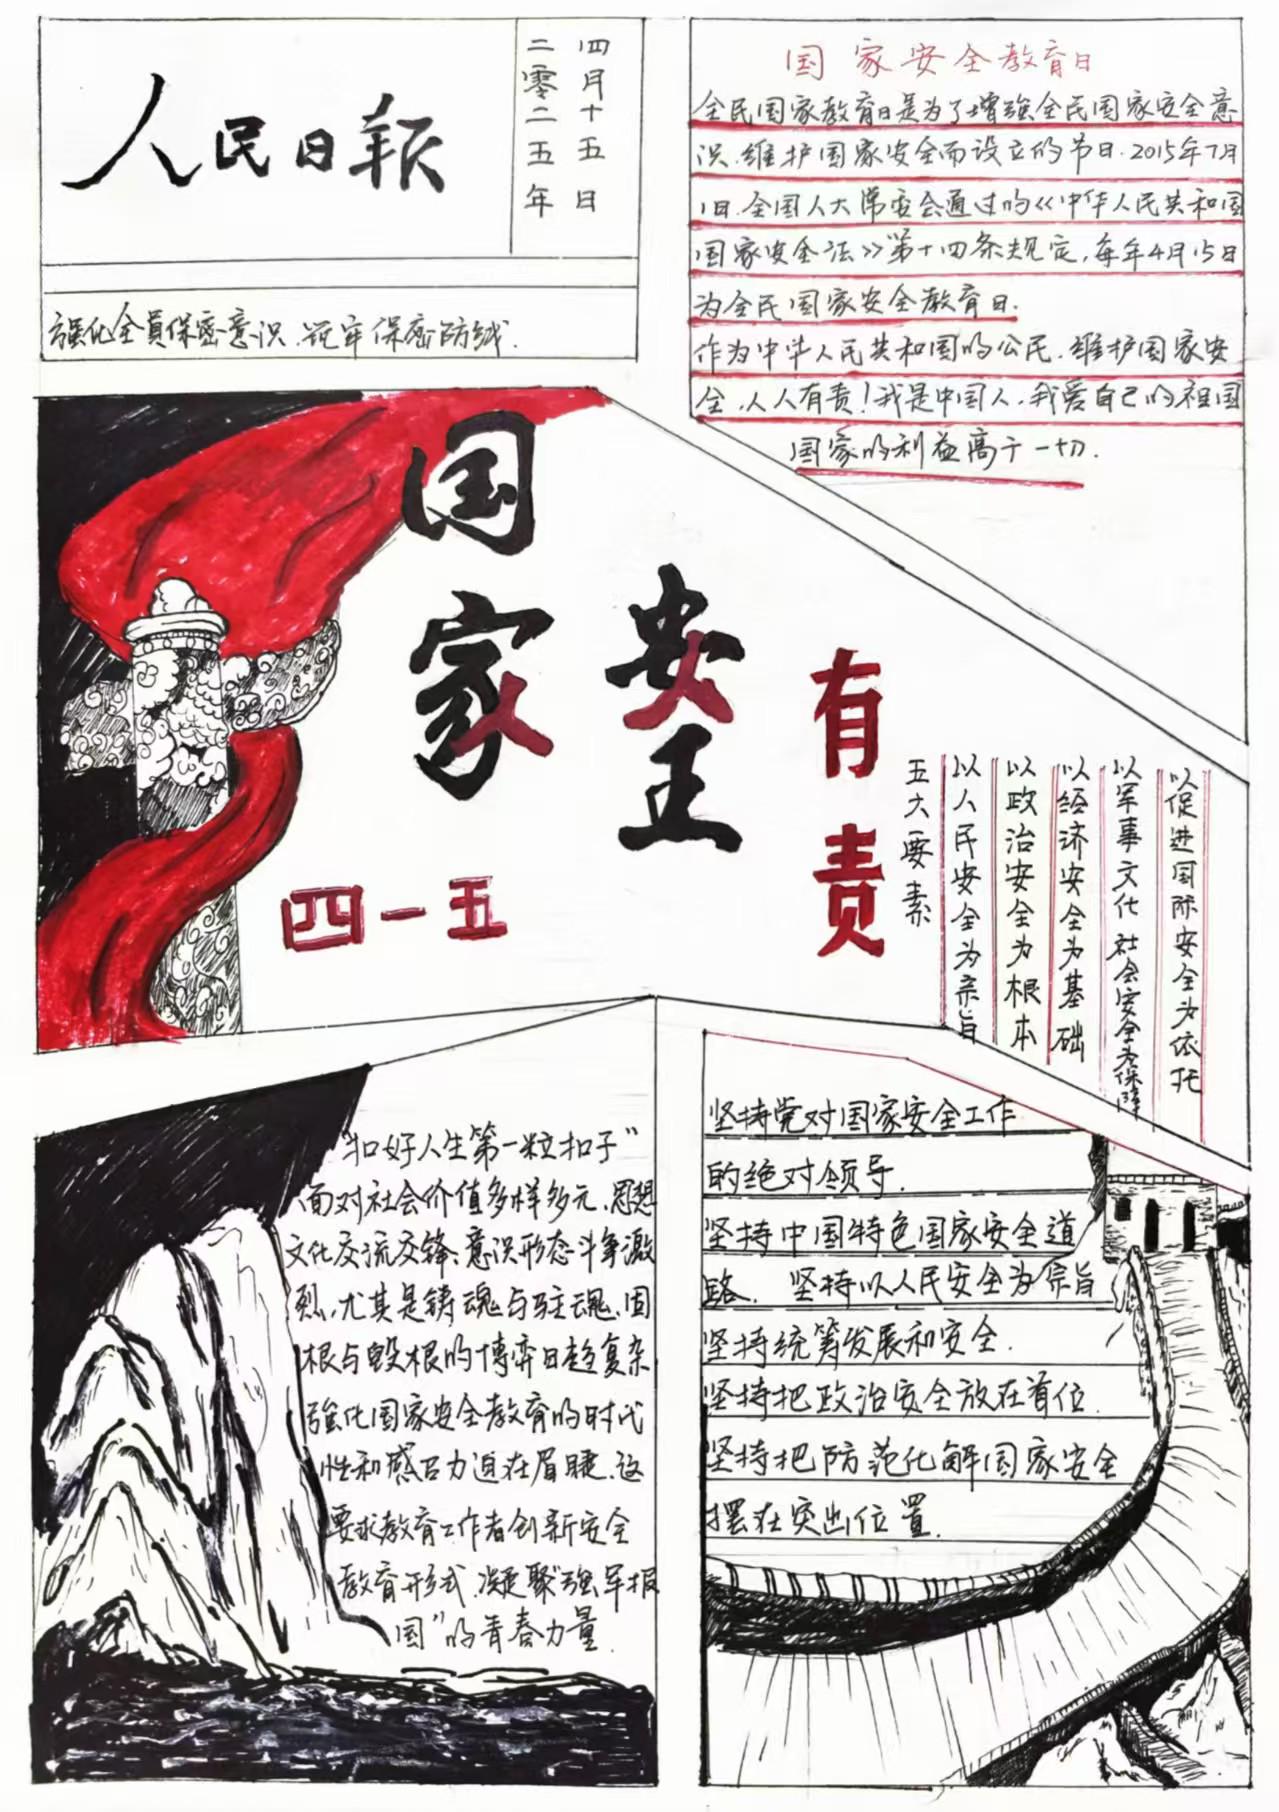 人民日报
四月十五日
二零二五年
强化全員保密意识.筑牢保密防线.
国家安全教育日
全民国家教育日是为了增强全民国家安全意
识.维护国家安全而设立的节日.2015年7月
1日.全国人大常委会通过的《中华人民共和国
国家安全法》第十四条规定,每年4月15日
为全民国家安全教育日.
作为中华人民共和国的公民.维护国家安
全.人人有责!我是中国人.我爱自己的祖国
国家的利益高于一切.
国家
安全
有责
四一五
五大要素
以人民安全为宗旨
以政治安全为根本
以经济安全为基础
以军事文化社会安全为保障
以促进国际安全为依托
“扣好人生第一粒扣子”
面对社会价值多样多元、思想
文化交流交锋、意识形态斗争激
烈,尤其是铸魂与驻魂、固
根与毁根的博弈日趋复杂
强化国家安全教育的时代
性和感召力迫在眉睫.这
要求教育工作者创新安全
教育形式.凝聚“强军报
国”的青春力量.
坚持党对国家安全工作
的绝对领导.
坚持中国特色国家安全道
路. 坚持以人民安全为宗旨
坚持统筹发展和安全.
坚持把政治安全放在首位.
坚持把防范化解国家安全
摆在突出位置.